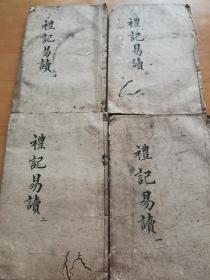 禮記易讀
禮記易讀
禮記易讀二
禮記易讀一